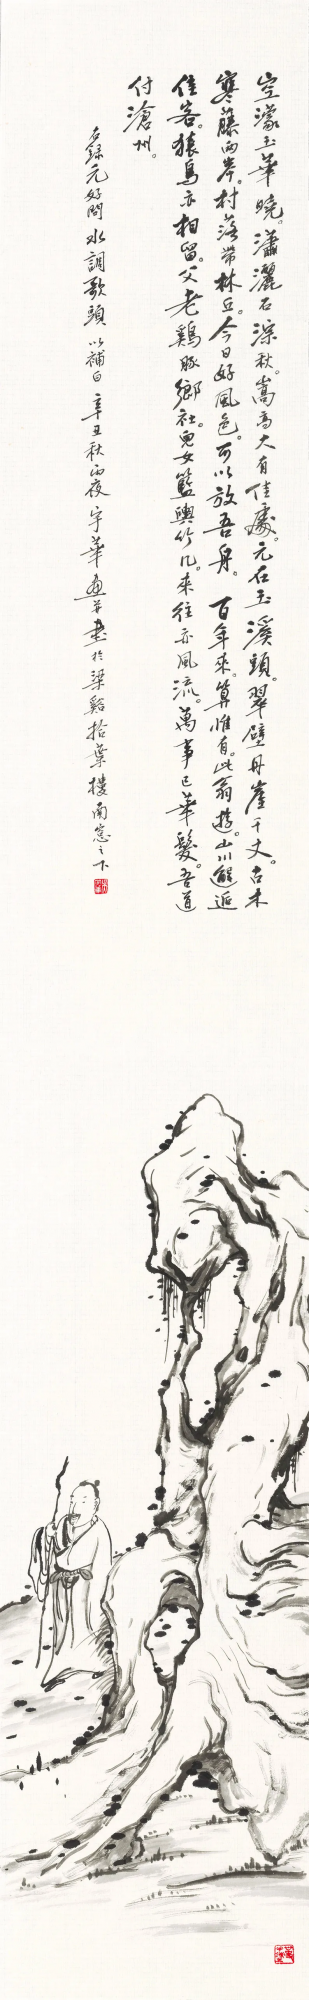 空濛玉華曉。瀟灑石淙秋。嵩高大有佳處。元在玉溪頭。翠壁丹崖千丈。古木
寒藤兩岸。村落帶林丘。今日好風色。可以放吾舟。 百年來。算惟有。此翁游。山川邂逅
佳客。猿鳥亦相留。父老鷄豚鄉社。兒女籃輿竹几。來往亦風流。萬事已華髮。吾道
付滄州。
右錄元好問水調歌頭以補白 辛丑秋雨夜宇華畫并書於梁谿拾葉樓南窓之下